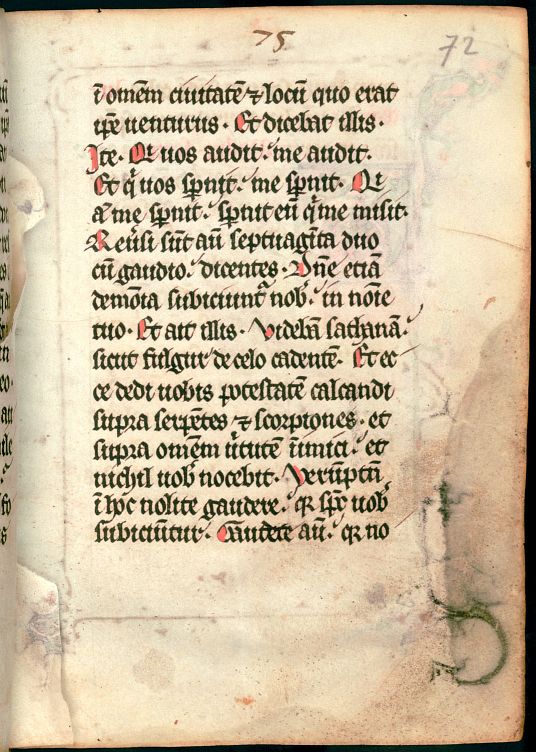 75
72
ī omēm ciuitatē ⁊ locū quo erat
ip̄e uenturus · Et dicebat illis ·
Ite · Qͥ uos audit · me audit ·
Et qͥ uos spnͥt · me spnͥt · Qͥ
aͭ me spnͥt · spnͥt eū qͥ me misit ·
Reuͥsi sūt aū septuagīta duo
cū gaudio · dicentes · Dn̄e etiā
demōia subiciunt̄ nob̄ · in noīe
tuo · Et ait illis · Videbā sathanā ·
sicut fulgur de celo cadentē · Et ec
ce dedi uobis potestatē calcandi
supra serpētes ⁊ scorpiones · et
supra omēm uͥtutē īimici · et
nichil uob̄ nocebit · Verūptn̄
ī hoc nolite gaudere · qꝛ sp̄c uob̄
subiciūtur · Gaudete aū · qꝛ no